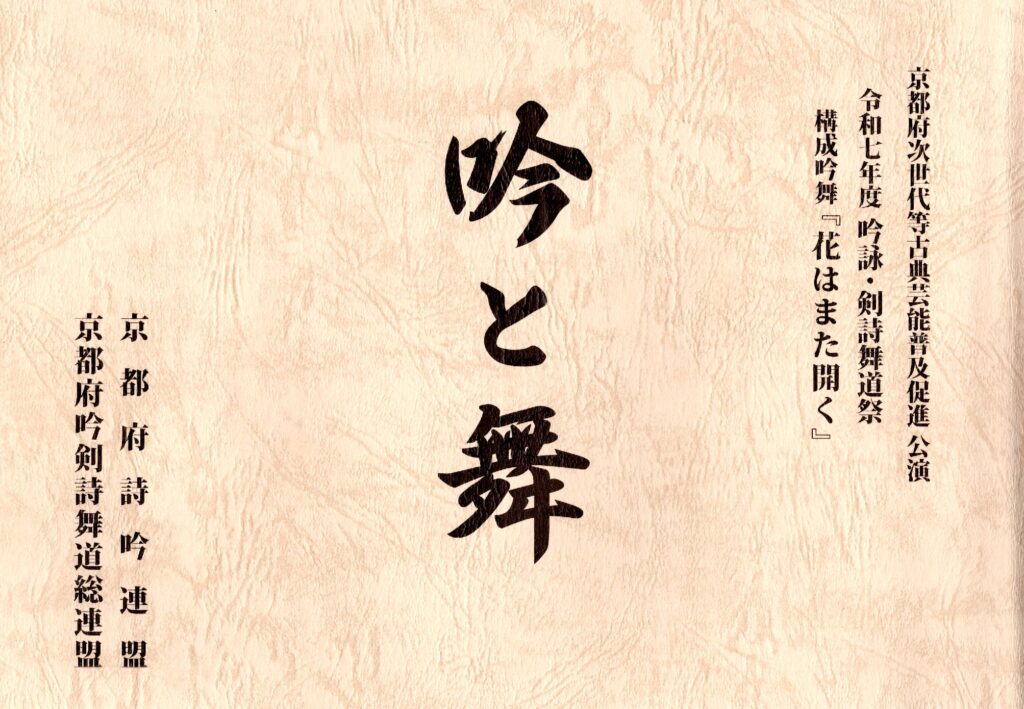 京都府次世代等古典芸能普及促進 公演
令和七年度 吟詠・剣詩舞道祭
構成吟舞『花はまた開く』
吟と舞
京都府詩吟連盟
京都府吟剣詩舞道総連盟